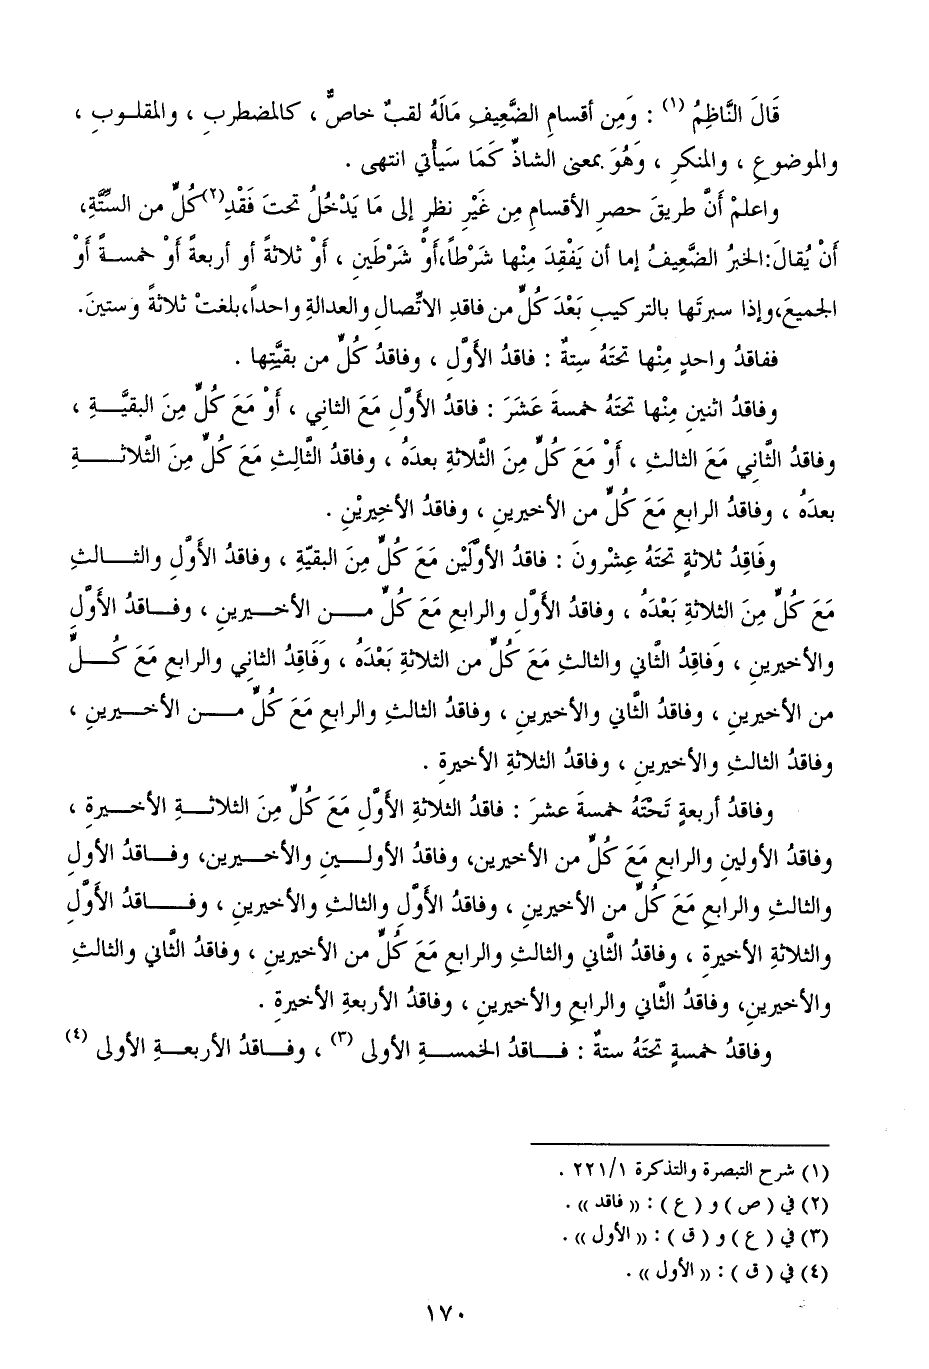 قَالَ النَّاظِمُ (١) : وَمِن أقسامِ الضَّعِيفِ مَالَهُ لقبٌ خاصٌّ ، كالمضطربِ ، والمقلـوبِ ،
والموضوعِ ، والمنكرِ ، وَهُوَ بمعنى الشاذِّ كَمَا سَيأْتي انتهى .
واعلمْ أَنَّ طريقَ حصرِ الأقسامِ مِن غَيْرِ نظرٍ إلى مَا يَدْخُلُ تحتَ فَقْدِ(٢)كُلٍّ من السِّتَّةِ،
أَنْ يُقالَ:الخبرُ الضَّعِيفُ إما أن يَفْقِدَ مِنْها شَرْطاً،أَوْ شرطَينِ ، أَوْ ثلاثةً أو أربعةً أَوْ خمسـةً أَوْ
الجميعَ،وإذا سبرتَها بالتركيبِ بَعْدَ كُلٍّ من فاقدِ الاتِّصالِ والعدالةِ واحداً،بلغتْ ثلاثةً وستينَ.
ففاقدُ واحدٍ مِنْها تحتَهُ سِتةٌ : فاقدُ الأَوَّلِ ، وفاقدُ كُلٍّ من بقيَّتِها .
وفاقدُ اثنينِ مِنْها تحتَهُ خمسةَ عَشَرَ : فاقدُ الأَوَّلِ مَعَ الثاني ، أَوْ مَعَ كُلٍّ مِنَ البقيَّـةِ ،
وفاقدُ الثَّاني مَعَ الثالثِ ، أَوْ مَعَ كُلٍّ مِنَ الثَّلاثةِ بعدَهُ ، وفاقدُ الثَّالِثِ مَعَ كُلٍّ مِنَ الثَّلاثـــةِ
بعدَهُ ، وفاقدُ الرابعِ مَعَ كُلٍّ من الأخيرينِ ، وفاقدُ الأخِيرِيْنِ .
وفَاقِدُ ثلاثةٍ تحتَهُ عِشْرونَ : فاقدُ الأوَّلَيْنِ مَعَ كُلٍّ مِنَ البقيّةِ ، وفاقدُ الأَوَّلِ والثـــالثِ
مَعَ كُلٍّ مِنَ الثلاثةِ بَعْدَهُ ، وفاقدُ الأَوَّلِ والرابعِ مَعَ كُلٍّ مـــن الأخـــيرينِ ، وفـــاقدُ الأَوَّلِ
والأخيرينِ ، وَفَاقِدُ الثَّاني والثالثِ مَعَ كُلٍّ من الثلاثةِ بَعْدَهُ ، وَفَاقِدُ الثاني والرابعِ مَعَ كُـــلٍّ
من الأخيرينِ ، وفاقدُ الثَّاني والأخيرينِ ، وفاقدُ الثالثِ والرابعِ مَعَ كُلٍّ مـــن الأخـــيرينِ ،
وفاقدُ الثالثِ والأخيرينِ ، وفاقدُ الثلاثةِ الأخيرةِ .
وفاقدُ أربعةٍ تَحْتَهُ خمسةَ عشرَ : فاقدُ الثلاثةِ الأَوَّلِ مَعَ كُلٍّ مِنَ الثلاثـــةِ الأخـــيرةِ ،
وفاقدُ الأولينِ والرابعِ مَعَ كُلٍّ من الأخيرينِ، وفاقدُ الأولـــينِ والأخـــيرينِ، وفـــاقدُ الأولِ
والثالثِ والرابعِ مَعَ كُلٍّ من الأخيرينِ ، وفاقدُ الأَوَّلِ والثالثِ والأخيرينِ ، وفـــاقدُ الأَوَّلِ
والثلاثةِ الأخيرةِ ، وفاقدُ الثاني والثالثِ والرابعِ مَعَ كُلٍّ من الأخيرينِ ، وفاقدُ الثَّاني والثالثِ
والأخيرينِ، وفاقدُ الثَّاني والرابعِ والأخيرينِ ، وفاقدُ الأربعةِ الأخيرةِ .
وفاقدُ خمسةٍ تحتَهُ ستةٌ : فـــاقدُ الخمســـةِ الأولى (٣) ، وفـــاقدُ الأربعـــةِ الأولى (٤)
(١) شرح التبصرة والتذكرة ٢٢١/١ .
(٢) في ( ص ) و ( ع ) : (( فاقد )) .
(٣) في ( ع ) و ( ق ) : (( الأول )) .
(٤) في ( ق ) : (( الأول )) .
١٧٠